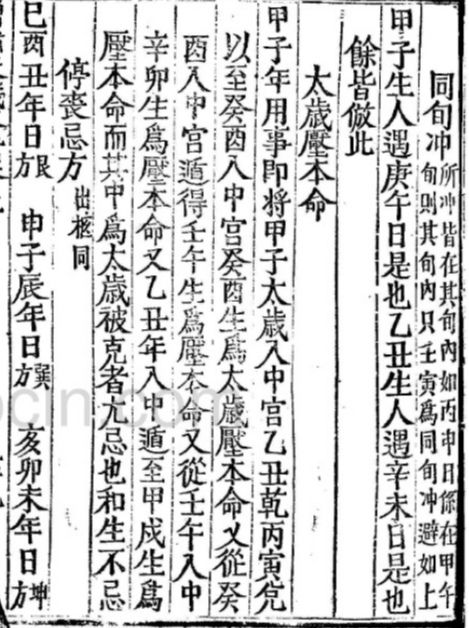 同旬冲 所冲皆在其旬內如丙申日係在甲午
旬則其旬內只壬寅爲同旬冲避如上
甲子生人遇庚午日是也乙丑生人遇辛未日是也
餘皆倣此
太歲壓本命
甲子年用事即將甲子太歲入中宮乙丑乾丙寅兌
以至癸酉入中宮癸酉生爲太歲壓本命又從癸
酉入中宮遁得壬午生爲壓本命又從壬午入中
辛卯生爲壓本命又乙丑年入中遁至甲戌生爲
壓本命而其中爲太歲被克者尤忌也和生不忌
停喪忌方 出柩同
巳酉丑年日艮方 申子辰年日巽方 亥卯未年日坤方